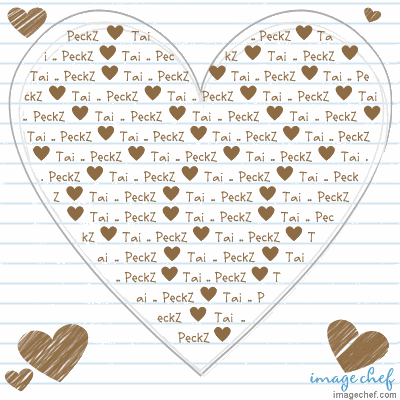 PeckZ ♥ Tai .. PeckZ ♥ Ta
i .. PeckZ ♥ Tai .. Pec kZ ♥ Tai .. PeckZ ♥
Tai .. PeckZ ♥ Tai .. PeckZ ♥ Tai .. PeckZ ♥ Tai .. Pe
ckZ ♥ Tai .. PeckZ ♥ Tai .. PeckZ ♥ Tai .. PeckZ ♥ Tai
.. PeckZ ♥ Tai .. PeckZ ♥ Tai .. PeckZ ♥ Tai .. PeckZ ♥
Tai .. PeckZ ♥ Tai .. PeckZ ♥ Tai .. PeckZ ♥ Tai .. PeckZ
♥ Tai .. PeckZ ♥ Tai .. PeckZ ♥ Tai .. PeckZ ♥ Tai .
. PeckZ ♥ Tai .. PeckZ ♥ Tai .. PeckZ ♥ Tai .. Peck
Z ♥ Tai .. PeckZ ♥ Tai .. PeckZ ♥ Tai .. PeckZ
♥ Tai .. PeckZ ♥ Tai .. PeckZ ♥ Tai .. Pec
kZ ♥ Tai .. PeckZ ♥ Tai .. PeckZ ♥ T
ai .. PeckZ ♥ Tai .. PeckZ ♥ Tai
.. PeckZ ♥ Tai .. PeckZ ♥ T
ai .. PeckZ ♥ Tai .. P
eckZ ♥ Tai ..
PeckZ ♥
image chef
imagechef.com